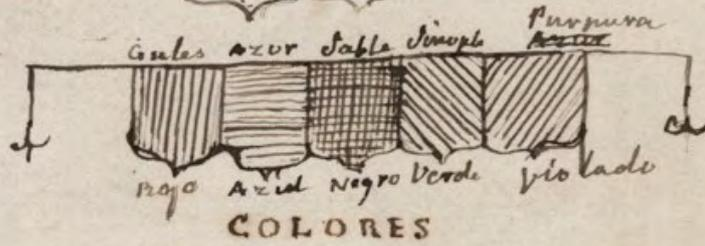 Purpura
Gules Azur Sable Sinople Azur
Rojo Azul Negro Verde Violado
COLORES